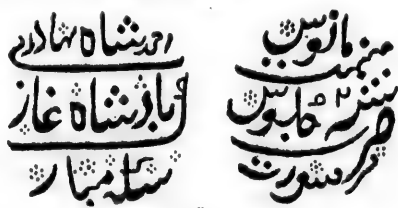 احمد شاه بهادر
بادشاه غازی
سکه مبارک
مانوس
میمنت
سنه ۲ جلوس
ضرب
سورت